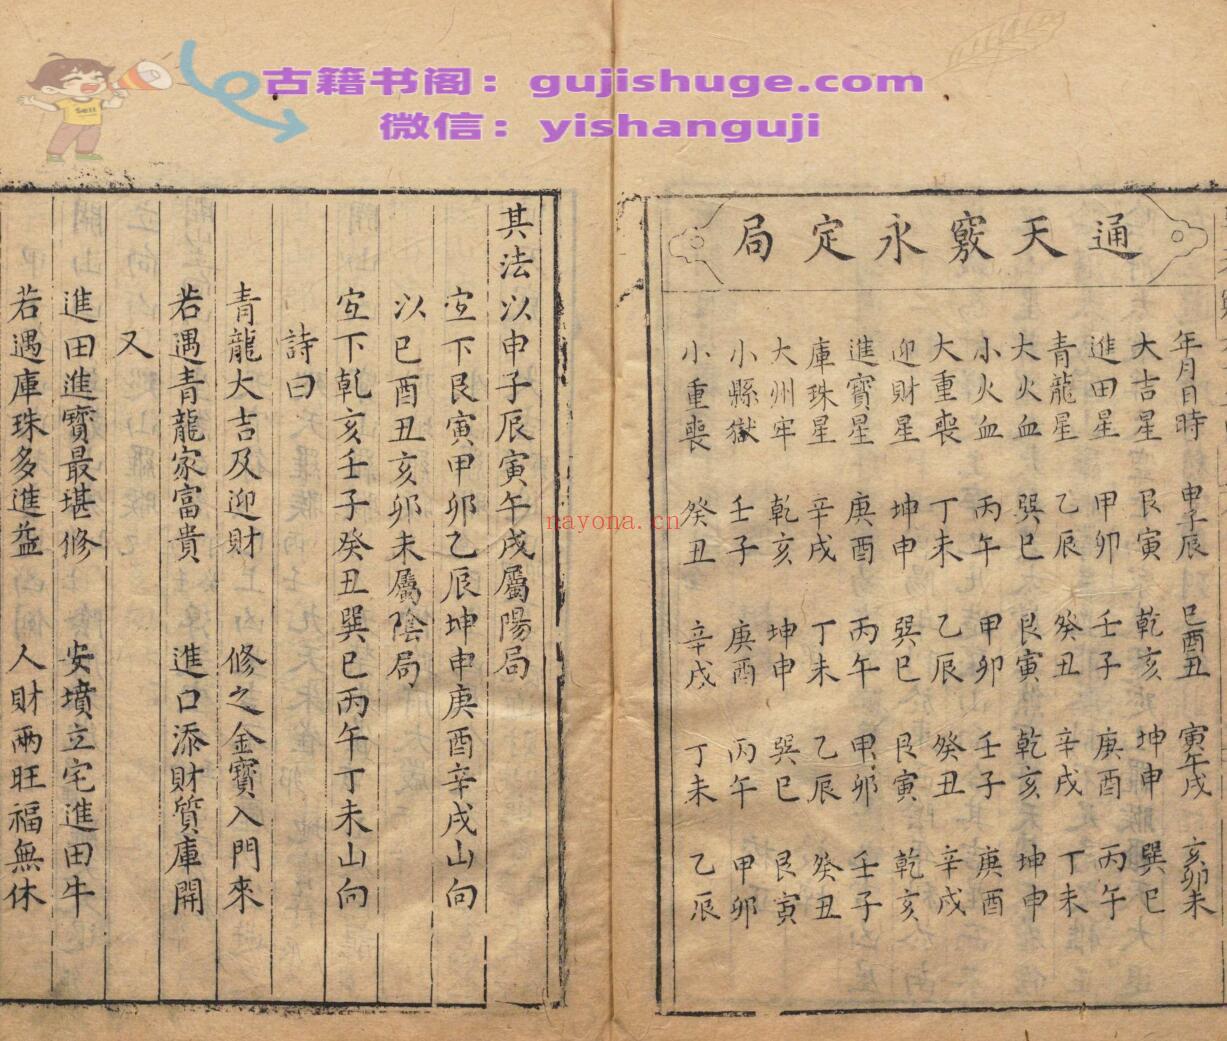 古籍书阁：gujishuge.com
微信：yishanguji
Sell
nayona.cn
通天竅永定局
年月日時 申子辰 巳酉丑 寅午戌 亥卯未
大吉星 艮寅 乾亥 坤申 巽巳
進田星 甲卯 壬子 庚酉 丙午
青龍星 乙辰 癸丑 辛戌 丁未
大火血 巽巳 艮寅 乾亥 坤申
小火血 丙午 甲卯 壬子 庚酉
大重喪 丁未 乙辰 癸丑 辛戌
迎財星 坤申 巽巳 艮寅 乾亥
進寳星 庚酉 丙午 甲卯 壬子
庫珠星 辛戌 丁未 乙辰 癸丑
大州牢 乾亥 坤申 巽巳 艮寅
小縣獄 壬子 庚酉 丙午 甲卯
小重喪 癸丑 辛戌 丁未 乙辰
其法以申子辰寅午戌屬陽局
宜下艮寅甲卯乙辰坤申庚酉辛戌山向
以巳酉丑亥卯未屬陰局
宜下乾亥壬子癸丑巽巳丙午丁未山向
詩曰
青龍大吉及迎財 修之金寳入門來
若遇青龍家富貴 進口添財質庫開
又
進田進寳最堪修 安墳立宅進田牛
若遇庫珠多進益 人財兩旺福無休